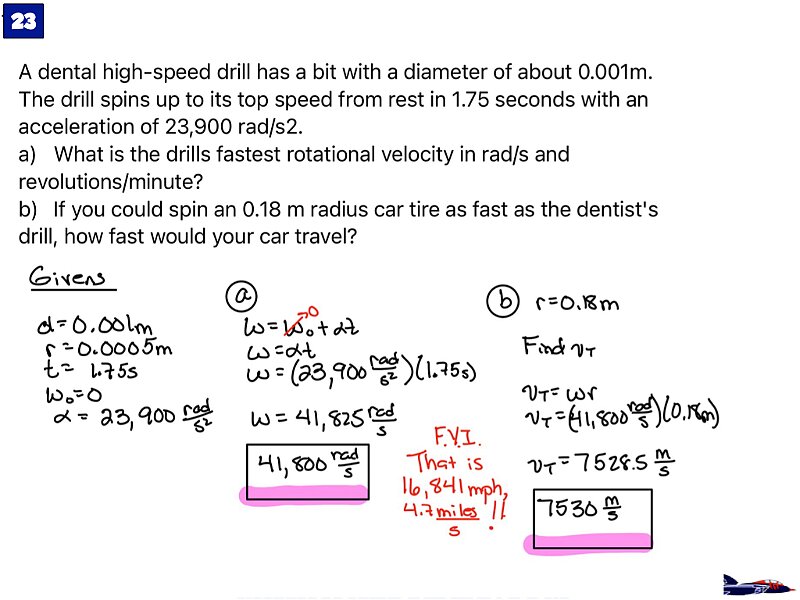 23
A dental high-speed drill has a bit with a diameter of about 0.001m.
The drill spins up to its top speed from rest in 1.75 seconds with an
acceleration of 23,900 rad/s2.
a) What is the drills fastest rotational velocity in rad/s and
revolutions/minute?
b) If you could spin an 0.18 m radius car tire as fast as the dentist's
drill, how fast would your car travel?
Givens
d=0.001m
r=0.0005m
t=1.75s
ω₀=0
α=23,900 rad/s²
a
ω=ω₀+αt
0
ω=αt
ω=(23,900 rad/s²)(1.75s)
ω=41,825 rad/s
41,800 rad/s
F.Y.I.
That is
16,841 mph,
4.7 miles/s !!
b r=0.18m
Find v_T
v_T=ωr
v_T=(41,800 rad/s)(0.18m)
v_T=7528.5 m/s
7530 m/s